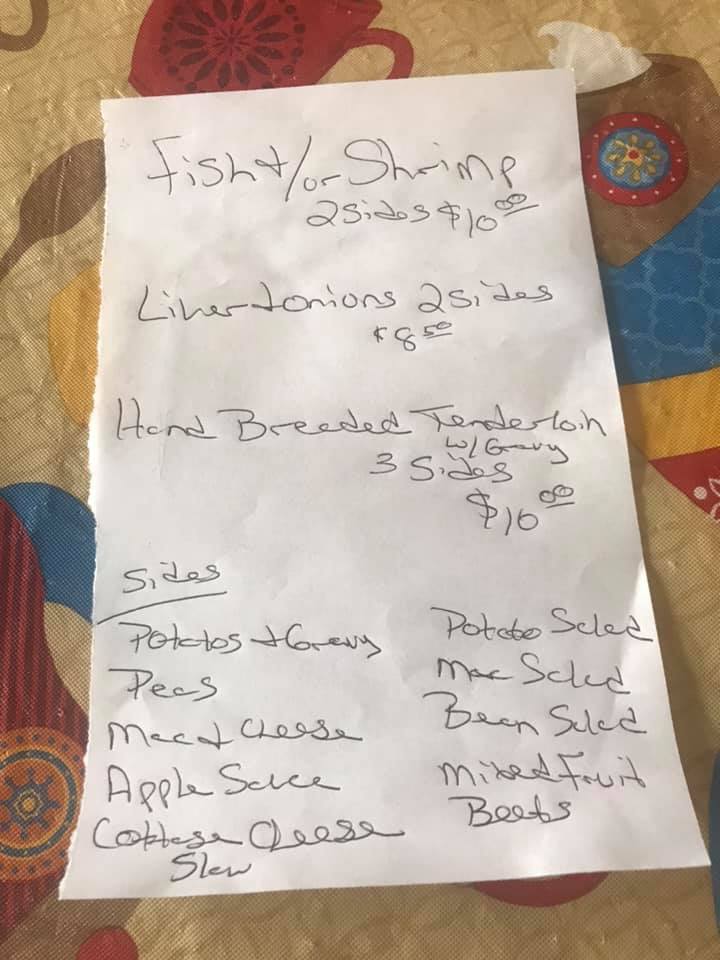 Fish +/or Shrimp
2 Sides $10.00
Liver + onions 2 Sides
$8.50
Hand Breeded Tenderloin
w/ Gravy
3 Sides
$10.00
Sides
Potatos + Gravy
Peas
Mac + Cheese
Apple Sauce
Cottage Cheese
Slaw
Potato Salad
Mac Salad
Bean Salad
Mixed Fruit
Beets